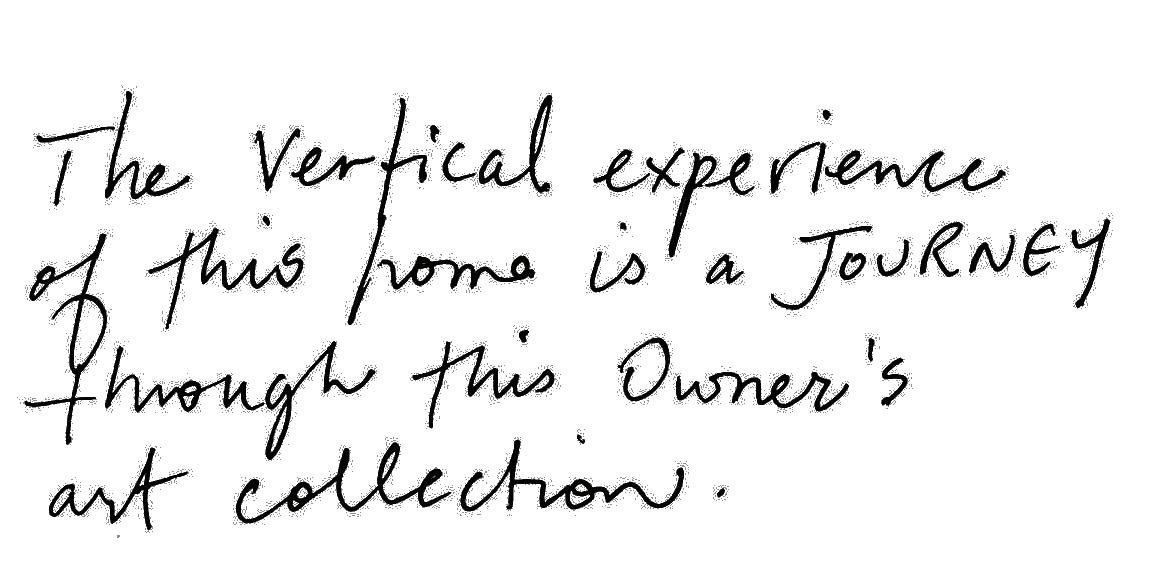 The Vertical experience
of this home is a JOURNEY
through this Owner's
art collection.